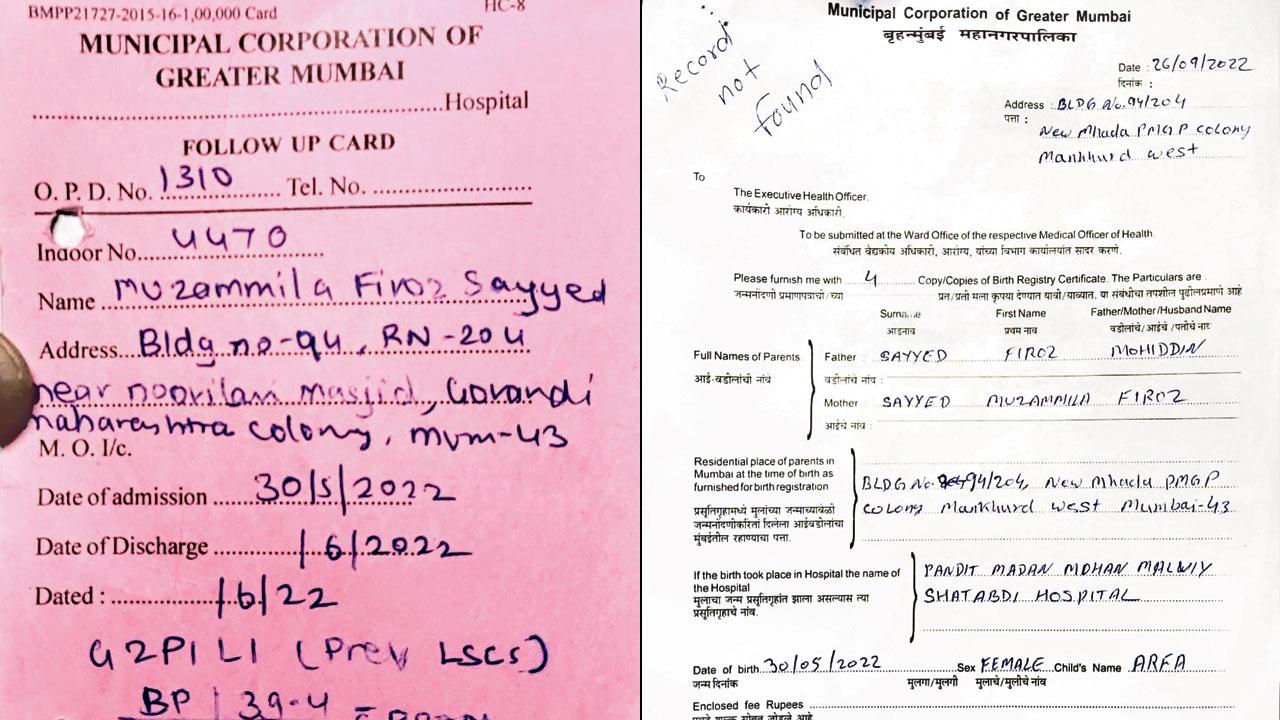 BMPP21727-2015-16-1,00,000 Card
HC-8
MUNICIPAL CORPORATION OF
GREATER MUMBAI
Hospital
FOLLOW UP CARD
O. P. D. No. 1310 Tel. No.
Indoor No. 4470
Name Muzammila Firoz Sayyed
Address Bldg no-94, RN-204
near noorilani masjid, Govandi
maharashtra colony, mum-43
M. O. I/c.
Date of admission 30/5/2022
Date of Discharge 1/6/2022
Dated : 1/6/22
G2P1L1 (Prev LSCS)
BP / 39-4
Record
not
Found
Municipal Corporation of Greater Mumbai
बृहन्मुंबई महानगरपालिका
Date : 26/09/2022
दिनांक :
Address : BLDG No. 94/204
पत्ता :
New Mhada PMGP colony
Mankhurd west
To
The Executive Health Officer.
कार्यकारी आरोग्य अधिकारी.
To be submitted at the Ward Office of the respective Medical Officer of Health.
संबंधित वैद्यकीय अधिकारी, आरोग्य, यांच्या विभाग कार्यालयांत सादर करणे.
Please furnish me with 4 Copy/Copies of Birth Registry Certificate. The Particulars are :
जन्मनोंदणी प्रमाणपत्राची/च्या प्रत/प्रती मला कृपया देण्यात यावी/याव्यात. या संबंधीचा तपशील पुढीलप्रमाणे आहे
Surname First Name Father/Mother/Husband Name
आडनाव प्रथम नाव वडीलांचे/आईचे/पतीचे नाव
Full Names of Parents Father : SAYYED FIROZ MOHIDDIN
आई-वडीलांची नांव वडीलांचे नांव :
Mother : SAYYED MUZAMMILA FIROZ
आईचे नांव :
Residential place of parents in
Mumbai at the time of birth as
furnished for birth registration
प्रसूतिगृहामध्ये मुलांच्या जन्माच्यावेळी
जन्मनोंदणीकरिता दिलेला आईवडीलांचा
मुंबईतील रहाण्याचा पत्ता.
BLDG No. 94/204, New Mhada PMGP
colony Mankhurd west Mumbai-43
If the birth took place in Hospital the name of
the Hospital
मुलाचा जन्म प्रसूतिगृहांत झाला असल्यास त्या
प्रसूतिगृहाचे नांव.
PANDIT MADAN MOHAN MALWIY
SHATABDI HOSPITAL
Date of birth 30/05/2022 Sex FEMALE Child's Name ARFA
जन्म दिनांक मुलगा/मुलगी मुलाचे/मुलीचे नांव
Enclosed fee Rupees